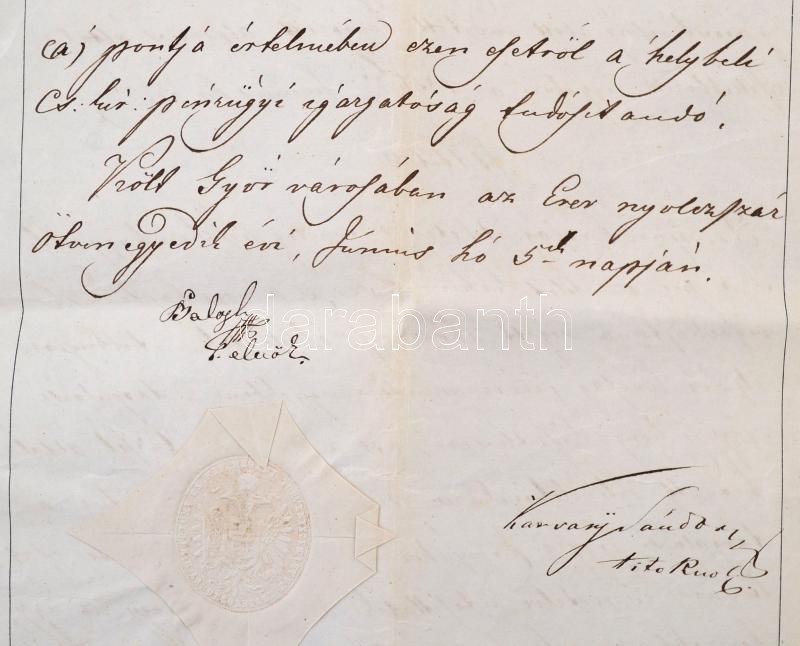 (a) pontjá értelmében ezen esetröl a helybeli
Cs: kir: pénzügyi igazgatóság tudósitandó.
Költ Györ városában az Ezer nyolczszáz
ötvenegyedik évi, Június hó 5ik napján.
Balogh
elnök.
darabanth
Karvasy Sándor
titoknok